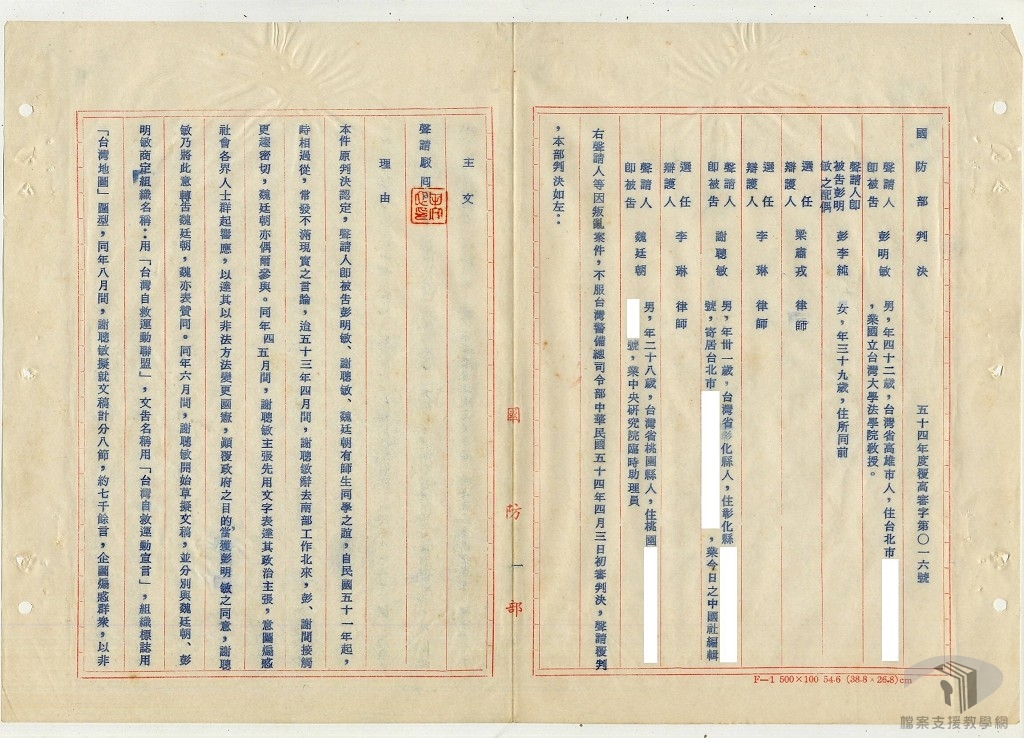 國防部判決　五十四年度覆高審字第〇一六號
聲請人即被告　彭明敏　男，年四十二歲，台灣省高雄市人，住台北市
，業國立台灣大學法學院教授。
聲請人即被告彭明敏之配偶　彭李純　女，年三十九歲，住所同前
選任辯護人　梁肅戎　律師
聲請人即被告　謝聰敏　男，年卅一歲，台灣省彰化縣人，住彰化縣
號，寄居台北市　，業今日之中國社編輯
選任辯護人　李琳　律師
選任辯護人　李琳　律師
聲請人即被告　魏廷朝　男，年二十八歲，台灣省桃園縣人，住桃園
號，業中央研究院臨時助理員
右聲請人等因叛亂案件，不服台灣警備總司令部中華民國五十四年四月三日初審判決，聲請覆判
，本部判決如左：
主文
聲請駁回
理由
本件原判決認定，聲請人即被告彭明敏、謝聰敏、魏廷朝有師生同學之誼，自民國五十一年起，
時相過從，常發不滿現實之言論，迨五十三年四月間，謝聰敏辭去南部工作北來，彭、謝間接觸
更趨密切，魏廷朝亦偶爾參與。同年四五月間，謝聰敏主張先用文字表達其政治主張，意圖煽惑
社會各界人士群起響應，以達其以非法方法變更國憲，顛覆政府之目的，當獲彭明敏之同意，謝聰
敏乃將此意轉告魏廷朝，魏亦表贊同。同年六月間，謝聰敏開始草擬文稿，並分別與魏廷朝、彭
明敏商定組織名稱：用「台灣自救運動聯盟」，文告名稱用「台灣自救運動宣言」，組織標誌用
「台灣地圖」圖型，同年八月間，謝聰敏擬就文稿計分八節，約七千餘言，企圖煽惑群衆，以非
國防部
F—1 500×100 54·6 (38·8×26·8)cm
檔案支援教學網